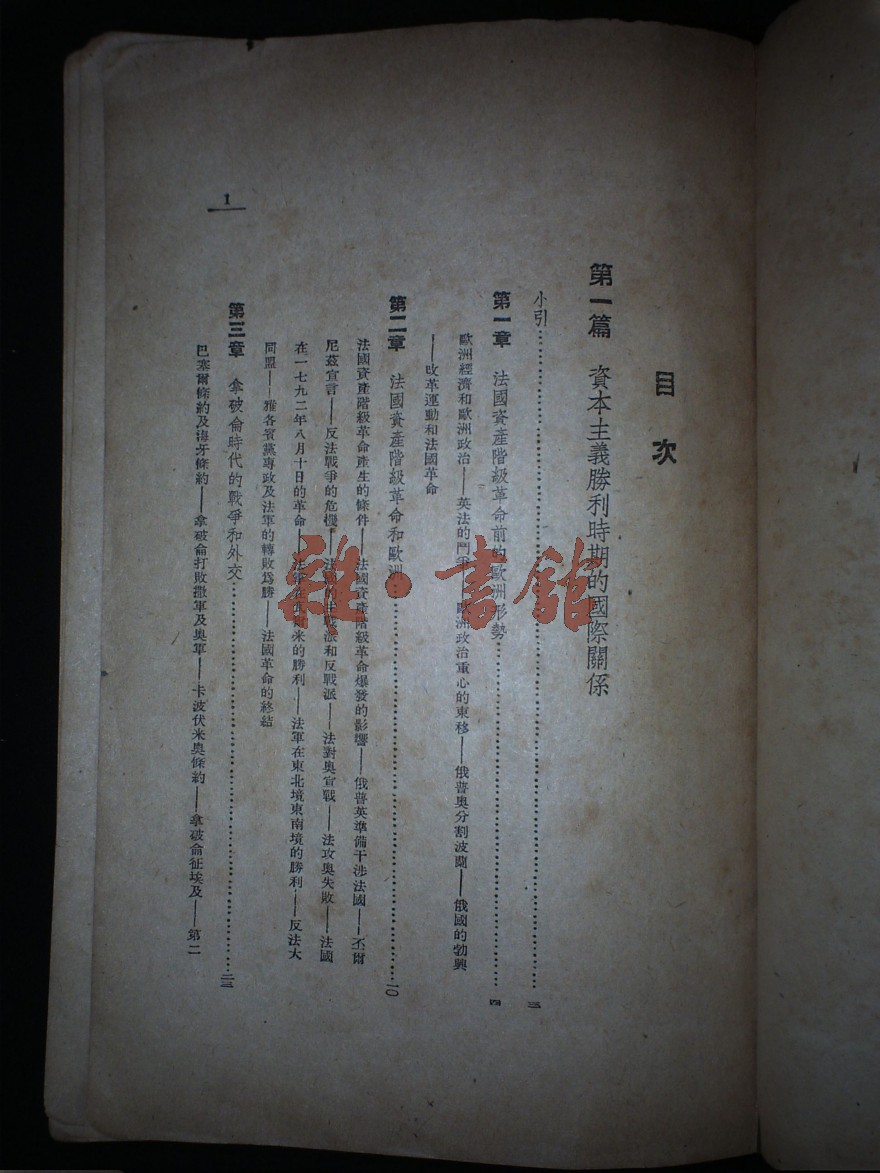 目次
第一篇 資本主義勝利時期的國際關係
小引……三
第一章 法國資產階級革命前的歐洲形勢……四
歐洲經濟和歐洲政治——英法的鬥爭——歐洲政治重心的東移——俄普奧分割波蘭——俄國的勃興
——改革運動和法國革命
第二章 法國資產階級革命和歐洲……一〇
法國資產階級革命產生的條件——法國資產階級革命爆發的影響——俄普英準備干涉法國——丕爾
尼茲宣言——反法戰爭的危機——法國的主戰派和反戰派——法對奧宣戰——法攻奧失敗——法國
在一七九二年八月十日的革命——法軍在 爾米的勝利——法軍在東北境東南境的勝利——反法大
同盟——雅各賓黨專政及法軍的轉敗爲勝——法國革命的終結
第三章 拿破侖時代的戰爭和外交……二三
巴塞爾條約及海牙條約——拿破侖打敗撒軍及奧軍——卡波伏米奧條約——拿破侖征埃及——第二
1
雜·書館